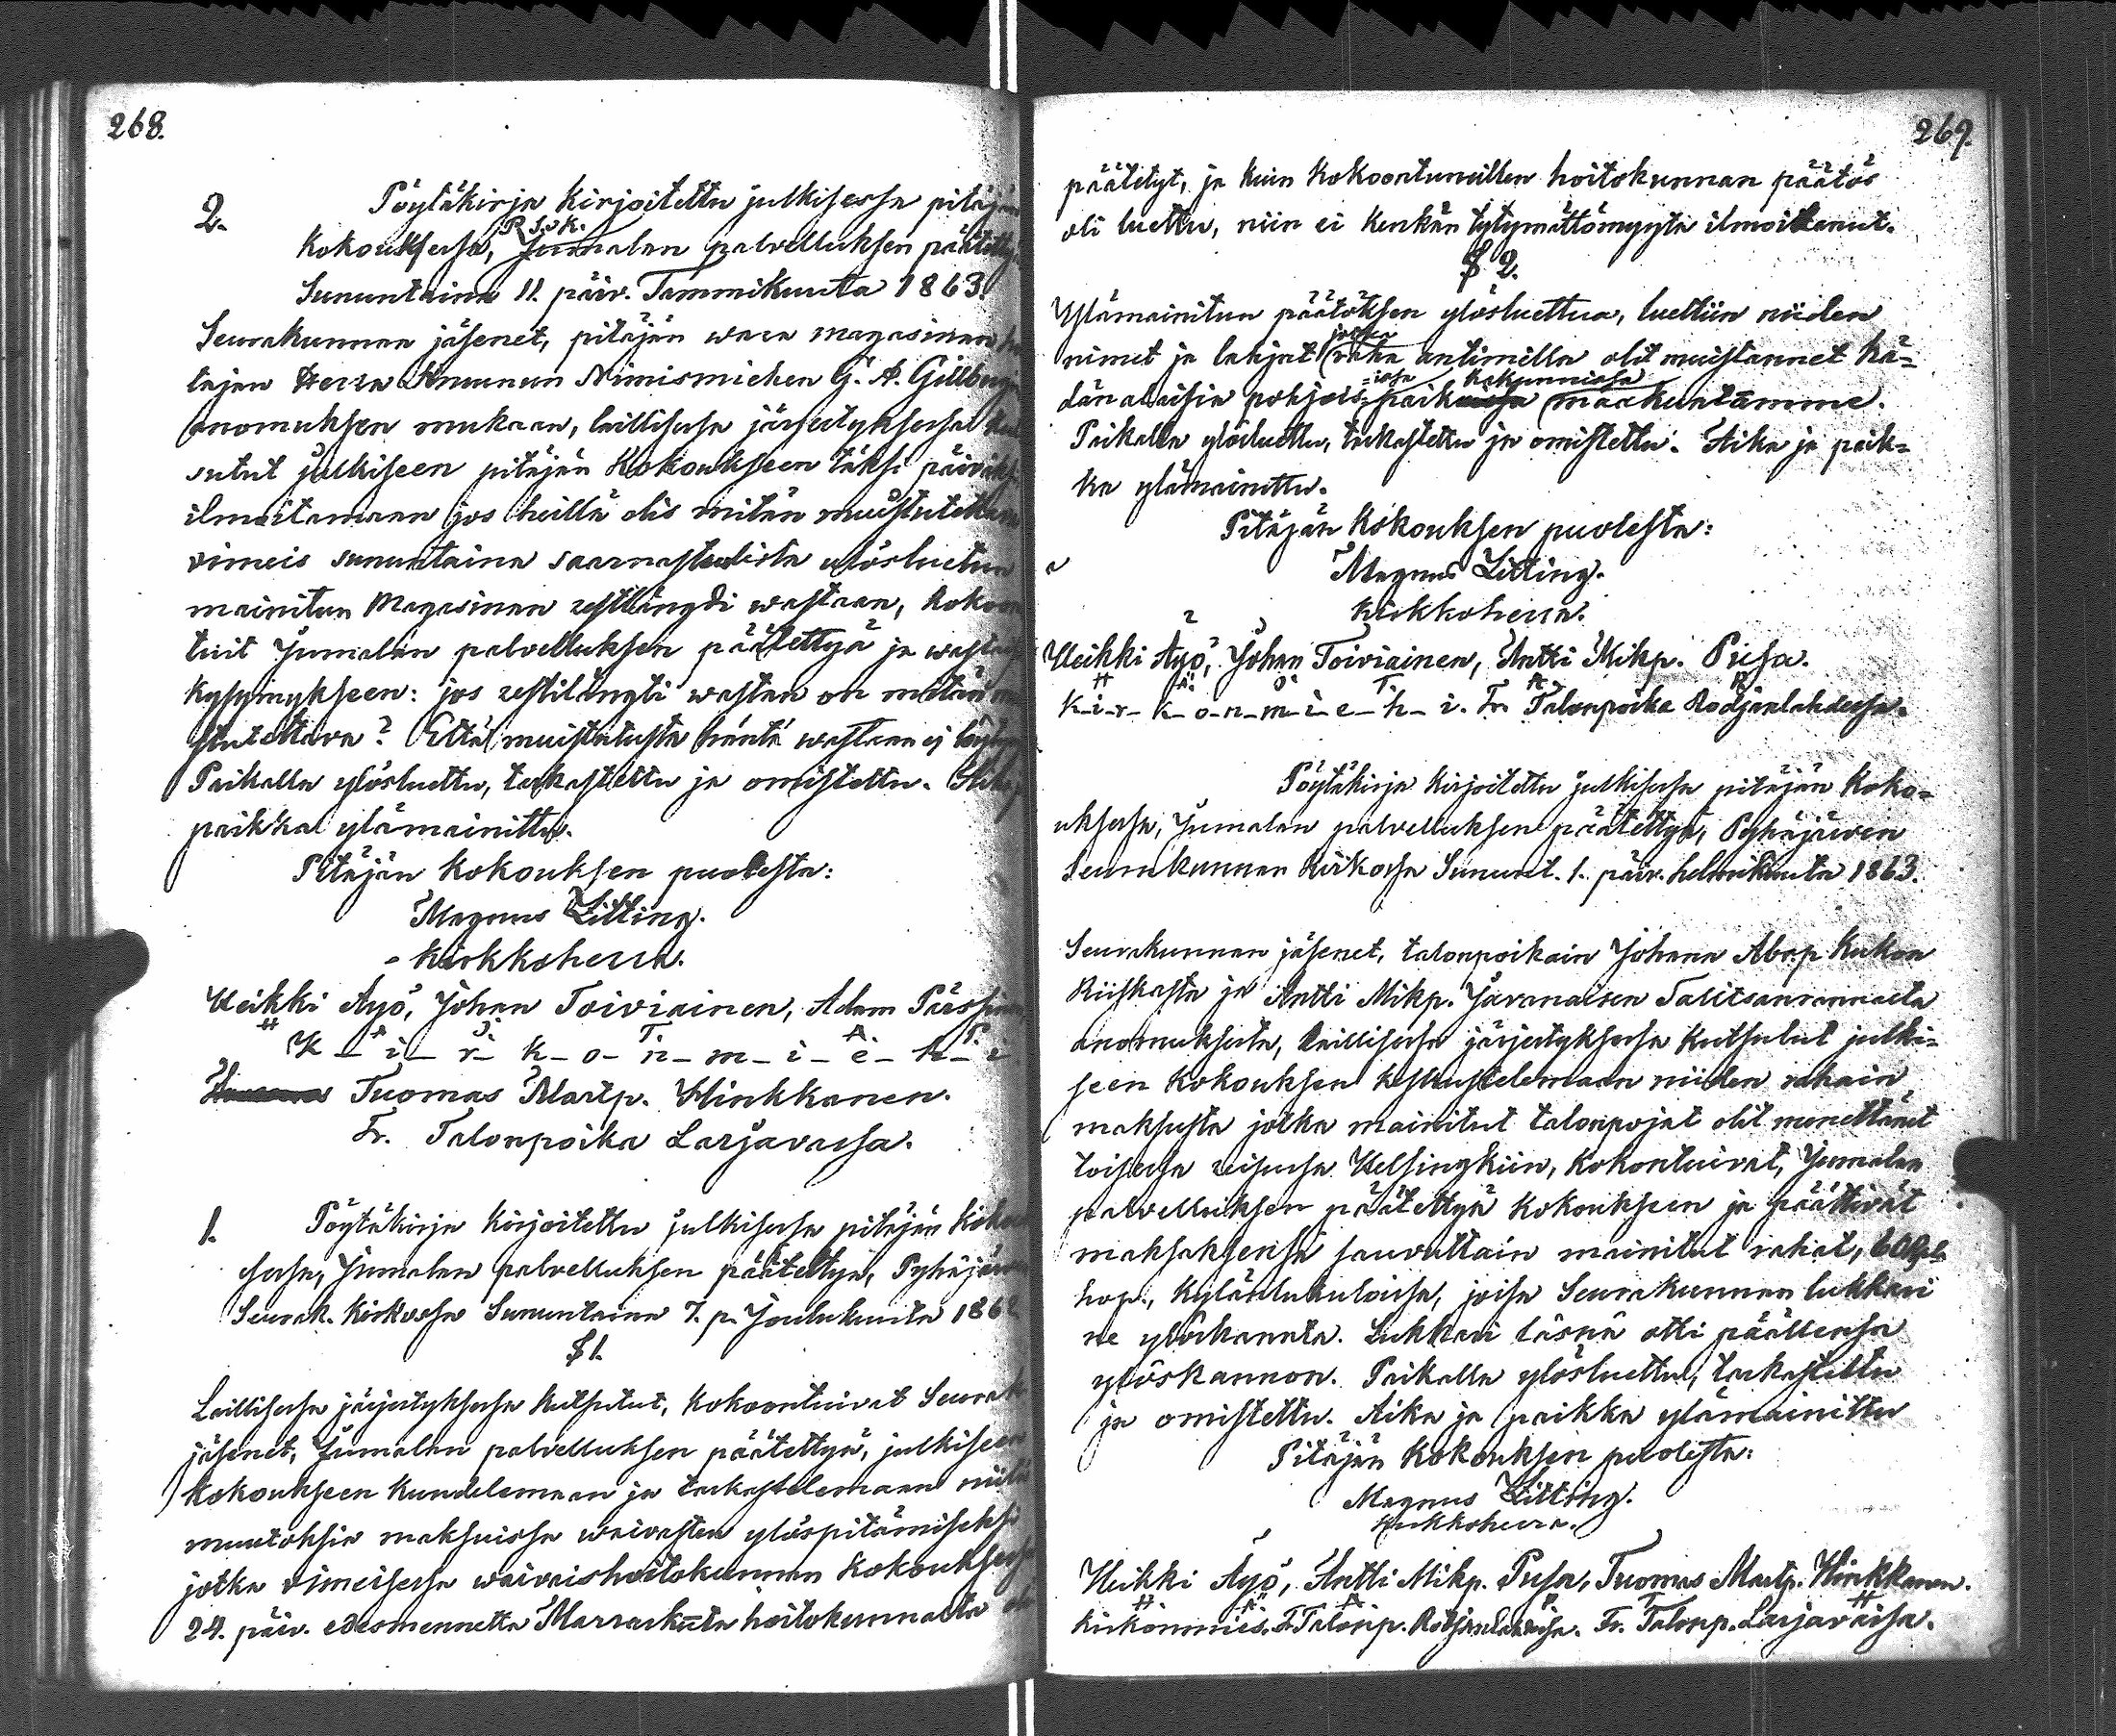 268.
2. Pöytäkirja Kirjoitettu julkisessa pitäjän
P. S. K.
Kokouksessa, Jumalan palvelluksen päätetty
Sununtaina 11. päiv. Tammikuuta 1863.
Seurakunnan jäsenet, pitäjän wara magasinan
tajan Herra Kruunun Nimismiehen G. A. Gillbergin
anomuksen mukaan, laillisessa järjestyksessä
sutut julkiseen pitäjän Kokoukseen täksi päiväksi
ilmoitamaan jos heillä olis mitän muistutettavaa
vimeis sununtaina saarnastuolista ylösluetun
mainitun Magasinan restlängdi wastaan, Kokoon
tuit Jumalan palvelluksen päätettyä ja wastasit
Kysymykseen: jos restilängti wastan on mitän mui
stutettava? Että muistutusta häntä wastaan ej löytynyt
Paikalla ylösluettu, tarkastettu ja omistettu. Aika ja
paikka ylämainittu.
Pitäjän Kokouksen puolesta:
Magnus Litting.
Kirkkoherra.
Heikki Äyö, Johan Toiviainen, Adam Pärssinen
H Ä J T A P.
K - i - r - k - o - n - m - i - e - h - i
Tuomas Martp. Hinkkanen.
Fr. Talonpoika Larjavassa.
1. Pöytäkirja Kirjoitettu julkisessa pitäjän Kokouk
sessa, Jumalan palvelluksen päätettyä, Pyhäjärven
Seurak. Kirkossa Sununtaina 7. p. Joulukuuta 1862
§ 1.
Laillisessa järjestyksessä Kutsutut, Kokoontuivat Seurak
jäsenet, Jumalan palvelluksen päätettyä, julkiseen
Kokoukseen Kuundelemaan ja tarkastelemaan niitä
muutoksia maksuissa waivasten ylöspitämiseksi
jotka vimeisessä waivaishoitokunnan Kokouksessa
24. päiv. edesmennettä Marraskuuta hoitokunnalta oli
269.
päätetyt, ja kuin Kokoontuneillen hoitokunnan päätös
oli luettu, niin ei Kenkän tytymättömyyttä ilmoittanut.
§ 2.
Ylämainitun päätöksen ylösluettua, luettiin niiden
nimet ja lahjat joilla raha antimilla olit muistannet hä-
dän alaisia pohjois- paik maakuntamme.
Paikalla ylösluettu, tarkastettu ja omistettu. Aika ja paik-
ka ylämainittu.
Pitäjän Kokouksen puolesta:
Magnus Litting.
Kirkkoherra.
Heikki Äyö, Johan Toiviainen, Antti Mikp. Pusa.
H Ä J T A P
K-i-r-k-o-n-m-i-e-h-i. Fr. Talonpoika Rodjanlahdessa.
Pöytäkirja Kirjoitettu julkisessa pitäjän Koko-
uksessa, Jumalan palvelluksen päätettyä, Pyhäjärven
Seurakunnan Kirkossa Sununt. 1. päiv. helmikuuta 1863.
Seurakunnan jäsenet, talonpoikain Johana Abr.p. Kukon
Riiskasta ja Antti Mikp. Javanaisen Talitsanrannalta
anomuksesta, laillisessa järjestyksessä Kutsutut julki-
seen Kokouksen keskustelemaan niiden rahain
maksusta jotka mainitut talonpojat olit menettänet
toisessa reisussa Helsingkiin, Kokontuivat, Jumalan
palvelluksen päätettyä Kokoukseen ja päättivät
maksaksensa sauvuttain mainitut rahat, 60 Rpl.
hop., Kylänlukuloissa, joisa Seurakunnan lukkari
ne ylöskannta. Lukkari läsnä otti päällensä
ylöskannon. Paikalla ylösluettu, tarkastettu
ja omistettu. Aika ja paikka ylämainittu
Pitäjän Kokouksen puolesta:
Magnus Litting.
Kirkkoherra.
Heikki Äyö, Antti Mikp. Pusa, Tuomas Martp. Hinkkanen.
H Ä A P T H
Kirkonmies. Fr. Talonp. Rotjanlahdessa. Fr. Talonp. Larjavassa.